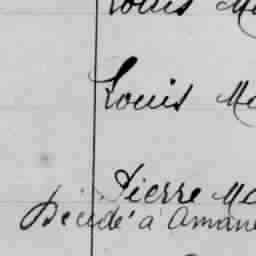 Louis M
Louis Ma
Pierre Ma
Décédé à Aman